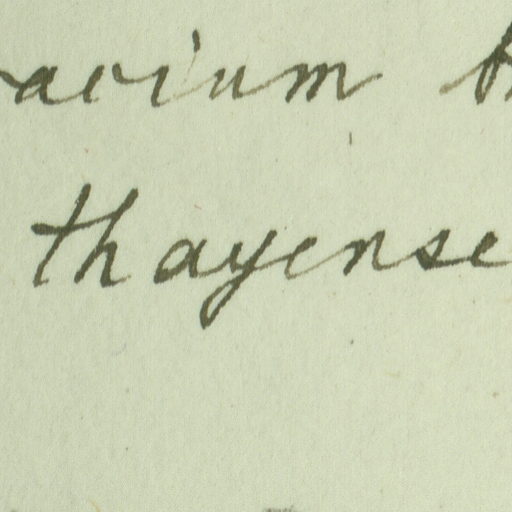 avium
thayense